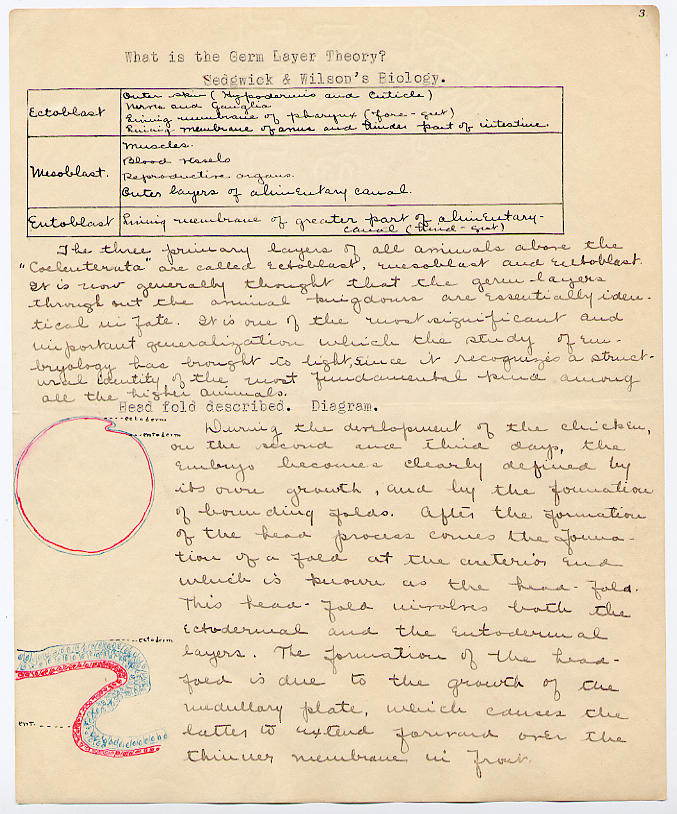 3.
What is the Germ Layer Theory?
Sedgwick & Wilson's Biology.
Ectoblast
Outer skin (Hypodermis and Cuticle)
Nerves and Ganglia
Lining membrane of pharynx (fore-gut)
Lining membrane of anus and hinder part of intestine.
Mesoblast.
Muscles.
Blood vessels
Reproductive organs.
Outer layers of alimentary canal.
Entoblast
Lining membrane of greater part of alimentary-
canal (hind-gut)
The three primary layers of all animals above the
"Coelenterata" are called Ectoblast, mesoblast and Entoblast.
It is now generally thought that the germ-layers
through out the animal kingdoms are essentially iden-
tical in fate. It is one of the most significant and
important generalization which the study of em-
bryology has brought to light, since it recognizes a struct-
ural identity of the most fundamental kind among
all the higher animals.
Head fold described. Diagram.
ectoderm
entoderm
During the development of the chicken,
on the second and third days, the
Embryo becomes clearly defined by
its own growth, and by the formation
of bounding folds. After the formation
of the head process comes the forma-
tion of a fold at the anterior end
which is known as the head-fold.
This head-fold involves both the
Ectodermal and the Entodermal
layers. The formation of the head-
fold is due to the growth of the
medullary plate, which causes the
latter to extend forward over the
thinner membrane in front.
ectoderm
ENT.